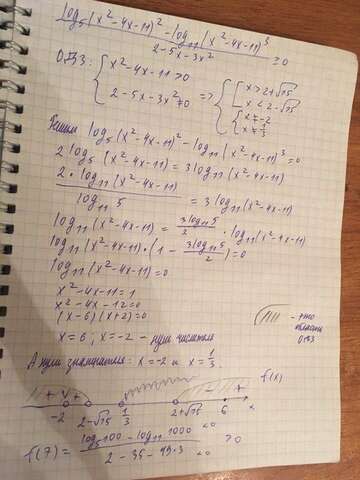 log₅(x²-4x-11)² - log₁₁(x²-4x-11)³
2-5x-3x² ≥0
ОДЗ: { x²-4x-11>0 => { [ x>2+√15
x<2-√15
2-5x-3x²≠0 { x≠-2
x≠1/3
Решим log₅(x²-4x-11)² - log₁₁(x²-4x-11)³=0
2log₅(x²-4x-11) = 3log₁₁(x²-4x-11)
2·log₁₁(x²-4x-11) / log₁₁5 = 3log₁₁(x²-4x-11)
log₁₁(x²-4x-11) = 3log₁₁5/2 · log₁₁(x²-4x-11)
log₁₁(x²-4x-11)·(1 - 3log₁₁5/2)=0
log₁₁(x²-4x-11)=0
x²-4x-11=1
x²-4x-12=0
(x-6)(x+2)=0
x=6; x=-2 - нули числителя
- это
область
ОДЗ
А нули знаменателя: x=-2 и x=1/3
f(x)
+ + +
-2 2-√15 1/3 2+√15 6 x
f(7) = log₅100 - log₁₁1000 <0 / 2-35-49·3 <0 >0